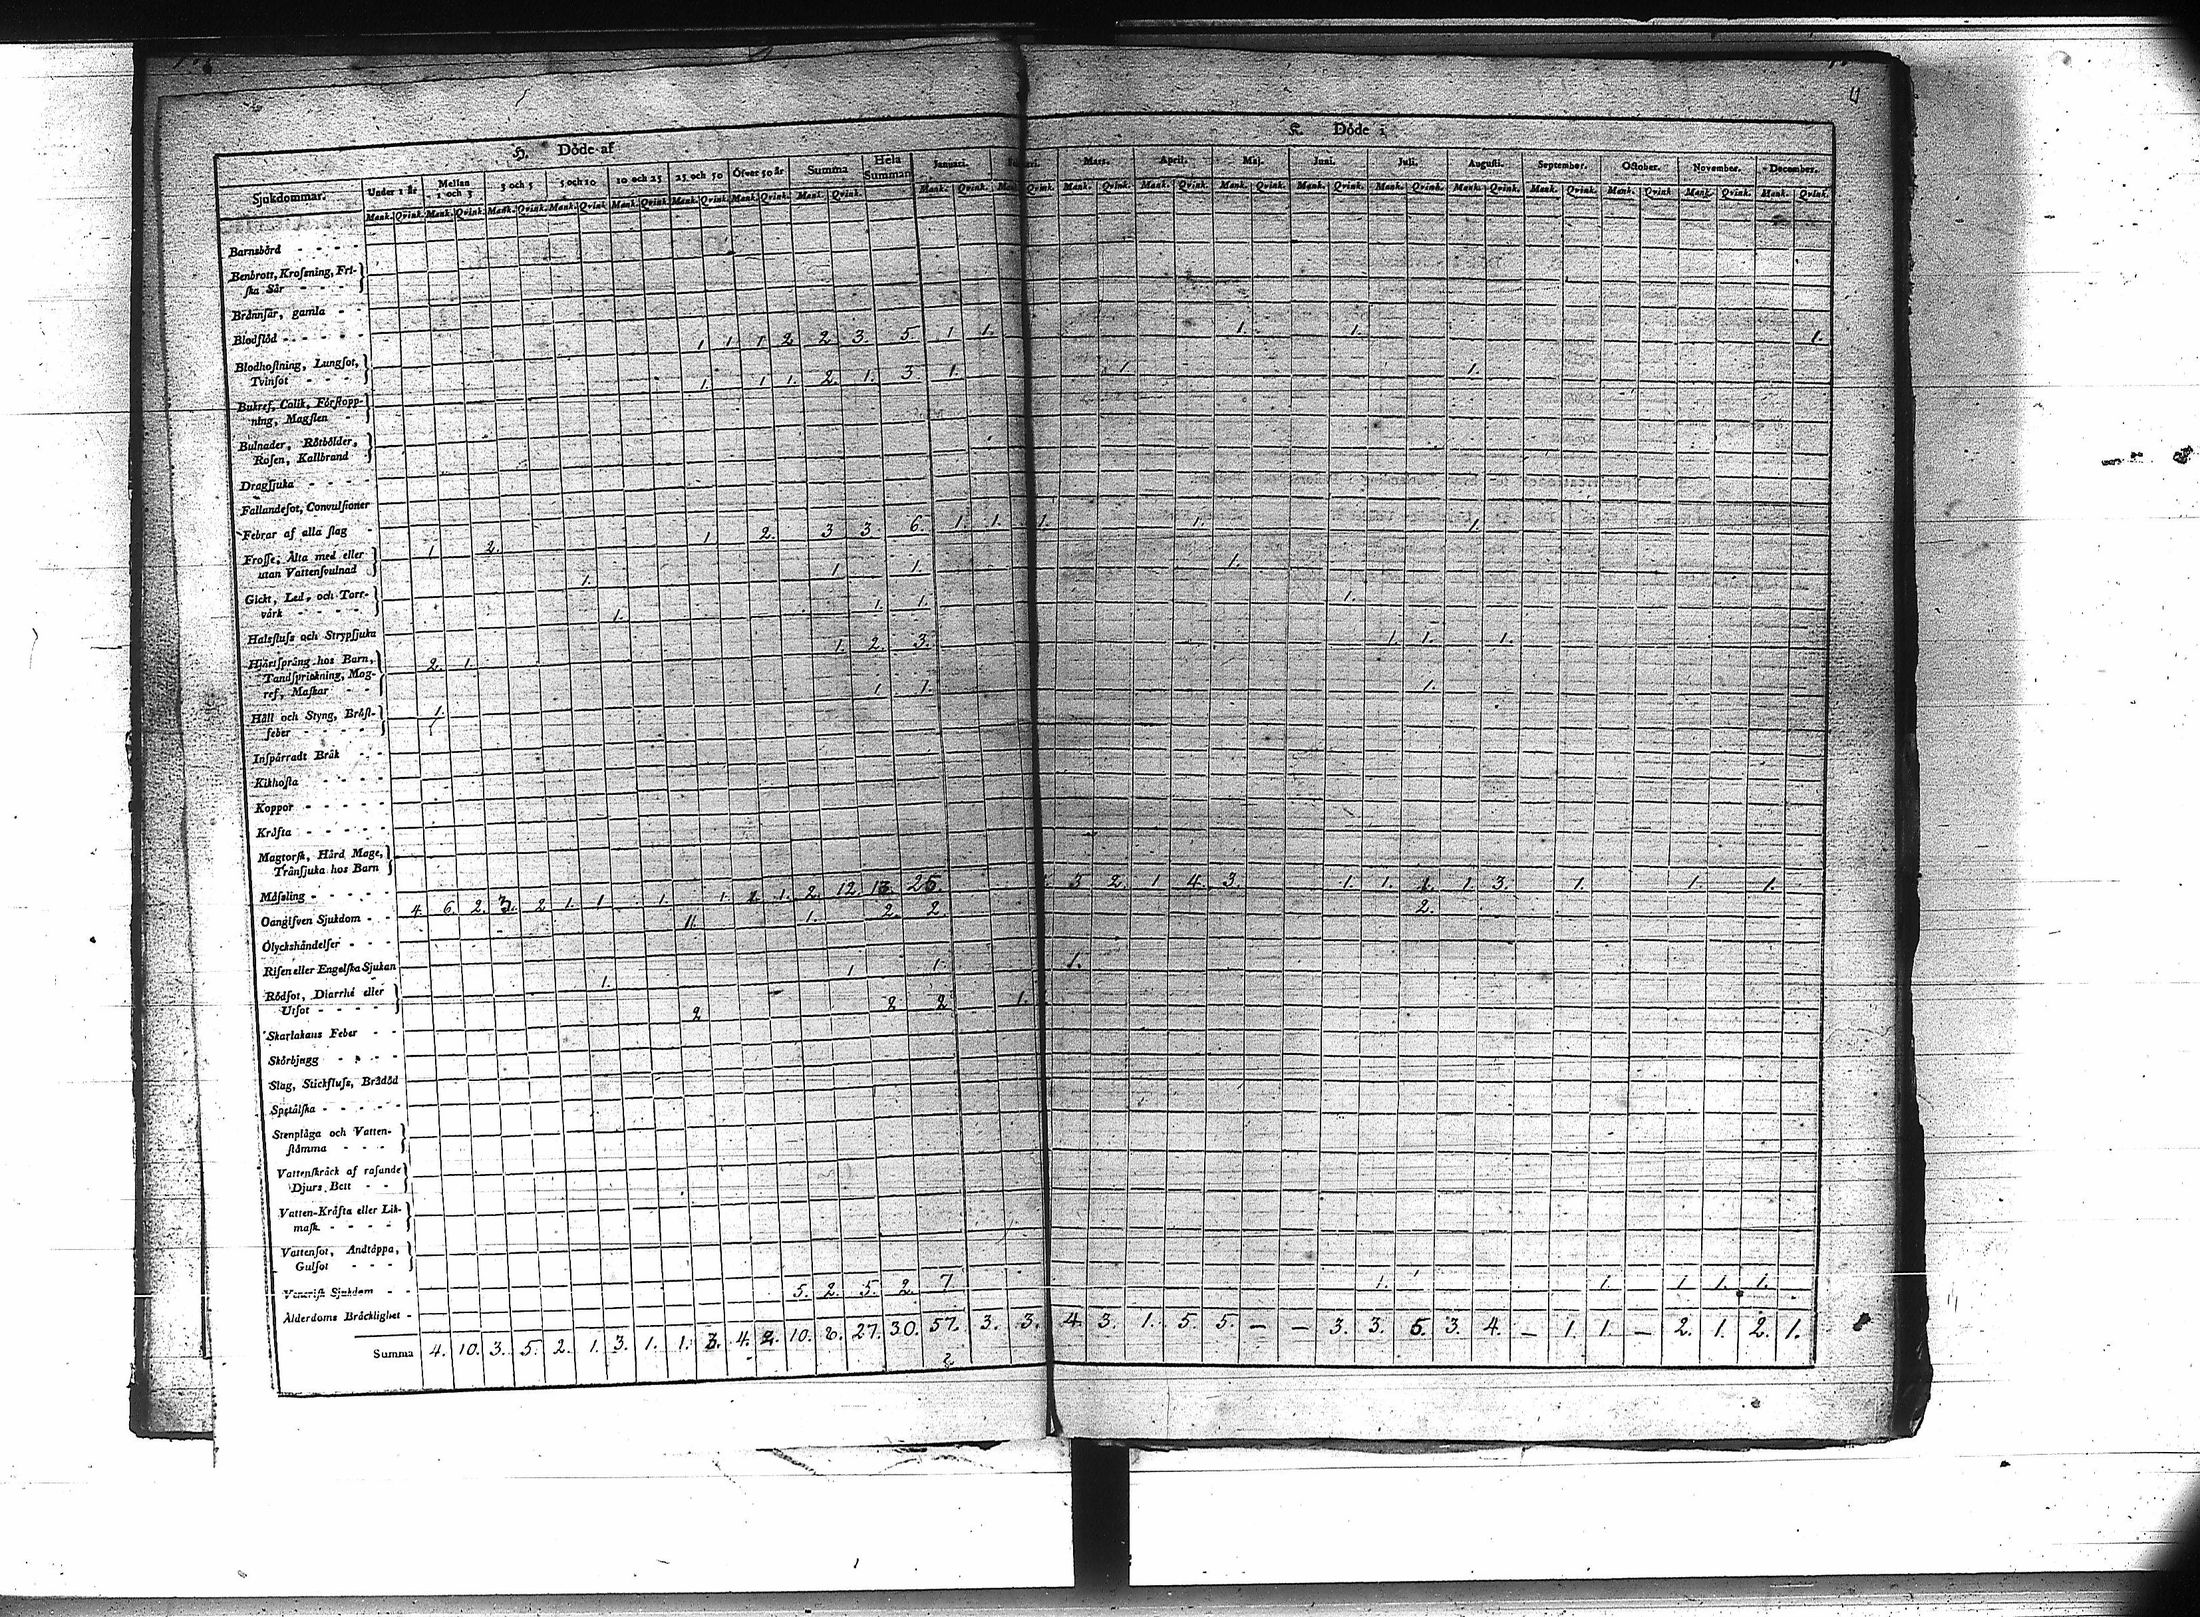 H. Döde af
K. Döde i
Sjukdommar. Under 1 år Mellan 1 och 3 3 och 5 5 och 10 10 och 25 25 och 50 Öfver 50 år Summa Hela Summan Januari. Mars. April. Maj. Juni. Juli. Augusti. September. October. November. December.
Mank. Qvink. Mank. Qvink. Mank. Qvink. Mank. Qvink. Mank. Qvink. Mank. Qvink. Mank. Qvink. Mank. Qvink. Mank. Qvink. Mank. Qvink. Mank. Qvink. Mank. Qvink. Mank. Qvink. Mank. Qvink. Mank. Qvink. Mank. Qvink. Mank. Qvink. Mank. Qvink. Mank. Qvink. Mank. Qvink.
Barnsbörd - - - -
Benbrott, Krosning, Fri-
ska Sår - - -
Brännsår, gamla - -
Blodflöd - - - - - - 1 1 1 2 2. 3. 5. 1 1. 1. 1. 1.
Blodhostning, Lungsot,
Tvinsot - - - 1. 1 1. 2. 1. 3 1. 1 1.
Bukref, Colik, Förstopp-
ning, Magsten
Bulnader, Rötbölder,
Rosen, Kallbrand
Dragsjuka - - - -
Fallandesot, Convulsioner
Febrar af alla slag - 1. 2. 1. 2. 3 3. 6. 1. 1. 1. 1. 1.
Frosse, Älta med eller
utan Vattensvulnad 1. 1. 1. 1.
Gickt, Led- och Torr-
värk - - - - 1. 1. 1. 1.
Halsfluss och Strypsjuka 2. 1. 1. 2. 3. 1. 1. 1.
Hjärtsprång hos Barn,
Tandsprickning, Mag-
ref, Maskar - - 1. 1 1. 1.
Håll och Styng, Bröst-
feber - - - - -
Inspärradt Bråk - -
Kikhosta - - - -
Koppor - - - - -
Kräfta - - - - -
Magtorsk, Hård Mage,
Tränsjuka hos Barn
Mässling - - - - 4. 6. 2. 3. 2. 1. 1. 1. 1. 1. 2. 12. 13. 25. 3 2. 1. 4. 3. 1. 1. 1. 1. 3. 1. 1. 1.
Oangifven Sjukdom - - 1. 2. 2. 2.
Olyckshändelser - - -
Risen eller Engelska Sjukan 1. 1. 1. 1.
Rödsot, Diarrhé eller
Utsot - - - - - 2 2 2 1.
Skarlakans Feber - -
Skörbjugg - - - -
Slag, Stickfluss, Brådöd
Spetälska - - - - -
Stenplåga och Vatten-
stämma - - -
Vattenskräck af rasande
Djurs Bett - -
Vatten-Kräfta eller Lik-
mask - - - -
Vattensot, Andtäppa,
Gulsot - - -
Venerisk Sjukdom - -
Ålderdoms Bräcklighet - 5. 2. 5. 2. 7 1. 1. 1 1. 1.
Summa 4. 10. 3. 5. 2. 1. 3. 1. 1. 3. 4. 2. 10. 27. 30. 57. 3. 3. 4. 3. 1. 5. 5. — — 3. 3. 5. 3. 4. — 1. 1. — 2. 1. 2. 1.